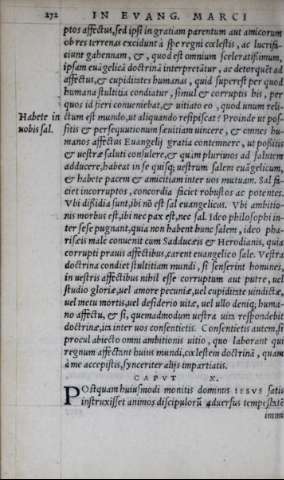 272 IN EVANG. MARCI
ptos affectus, sed ipsi in gratiam parentum aut amicorum
ob res terrenas excidunt à spe regni cœlestis, ac lucrifi-
ciunt gahennam, &, quod est omnium sceleratissimum,
ipsam euāgelicā doctrinā interpretātur, ac detorquēt ad
affectus, & cupiditates humanas, quid superest per quod
humana stultitia condiatur, simul & corruptis his, per
quos id fieri conueniebat, & uitiato eo, quod unum reli-
Habete in ctum est mundo, ut aliquando resipiscat? Proinde ut pos-
uobis sal. sitis & persequutionum sæuitiam uincere, & omnes hu-
manos affectus Euangelij gratia contemnere, ut possitis
& uestræ saluti consulere, & quàm plurimos ad salutem
adducere, habeat in se quisq; uestrum salem euāgelicum,
& habete pacem & amicitiam inter uos mutuam. Sal fa-
ciet incorruptos, concordia faciet robustos ac potentes.
Vbi dissidia sunt, ibi nō est sal euangelicus. Vbi ambitio-
nis morbus est, ibi nec pax est, nec sal. Ideo philosophi in-
ter sese pugnant, quia non habent hunc salem, ideo pha-
risæis male conuenit cum Sadducæis & Herodianis, quia
corrupti prauis affectibus, carent euangelico sale. Vestra
doctrina condiet stultitiam mundi, si senserint homines,
in uestris affectibus nihil esse corruptum aut putre, uel
studio gloriæ, uel amore pecuniæ, uel cupiditate uindictæ,
uel metu mortis, uel desiderio uitæ, uel ullo deniq; huma-
no affectu, & si, quemadmodum uestra uita respondebit
doctrinæ, ita inter uos consentietis. Consentietis autem, si
procul abiecto omni ambitionis uitio, quo laborant qui
regnum affectant huius mundi, cœlestem doctrinā, quam
à me accepistis, synceriter alijs impartiatis.
CAPVT X.
POstquam huiusmodi monitis dominus IESVS satis
instruxisset animos discipulorū aduersus tempestatē
immi